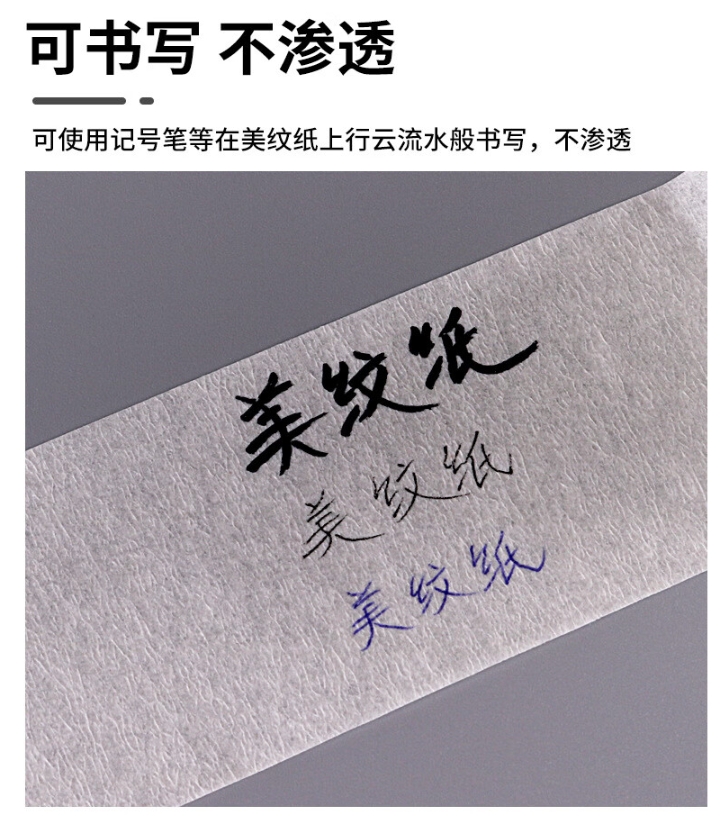 可书写 不渗透
可使用记号笔等在美纹纸上行云流水般书写，不渗透
美纹纸
美纹纸
美纹纸